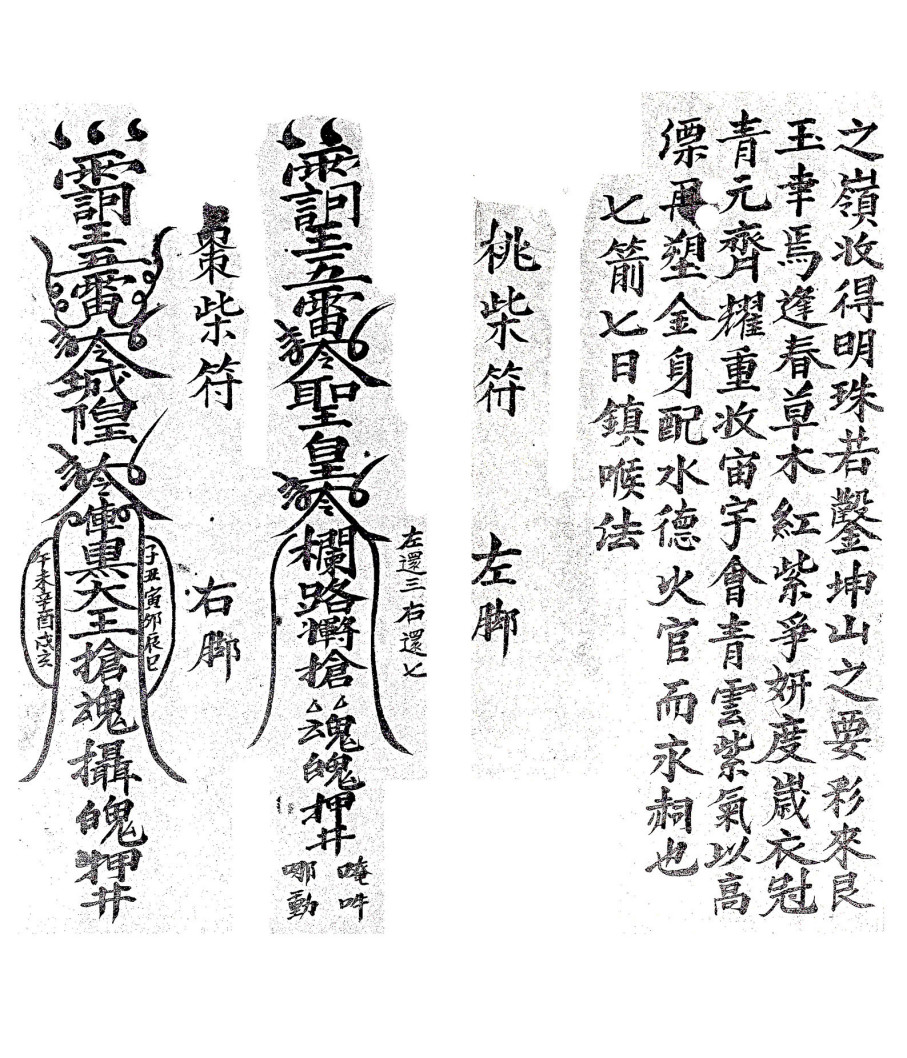 之嶺收得明珠若鑿坤山之要彩來艮
玉幸焉逢春草木紅紫爭妍度歲衣冠
青元齊耀重收宙宇會青雲紫氣以高
漂再塑金身配水德火官而永嗣也
七箭七日鎮喉法
桃柴符 左脚
左還三右還七
玉五雷令聖皇令欄路 搶魂魄押井
唵吽
哪勭
棗柴符 右脚
玉五雷令城隍令 黑大王搶魂攝魄押井
子丑寅卯辰巳
午未辛酉戌亥